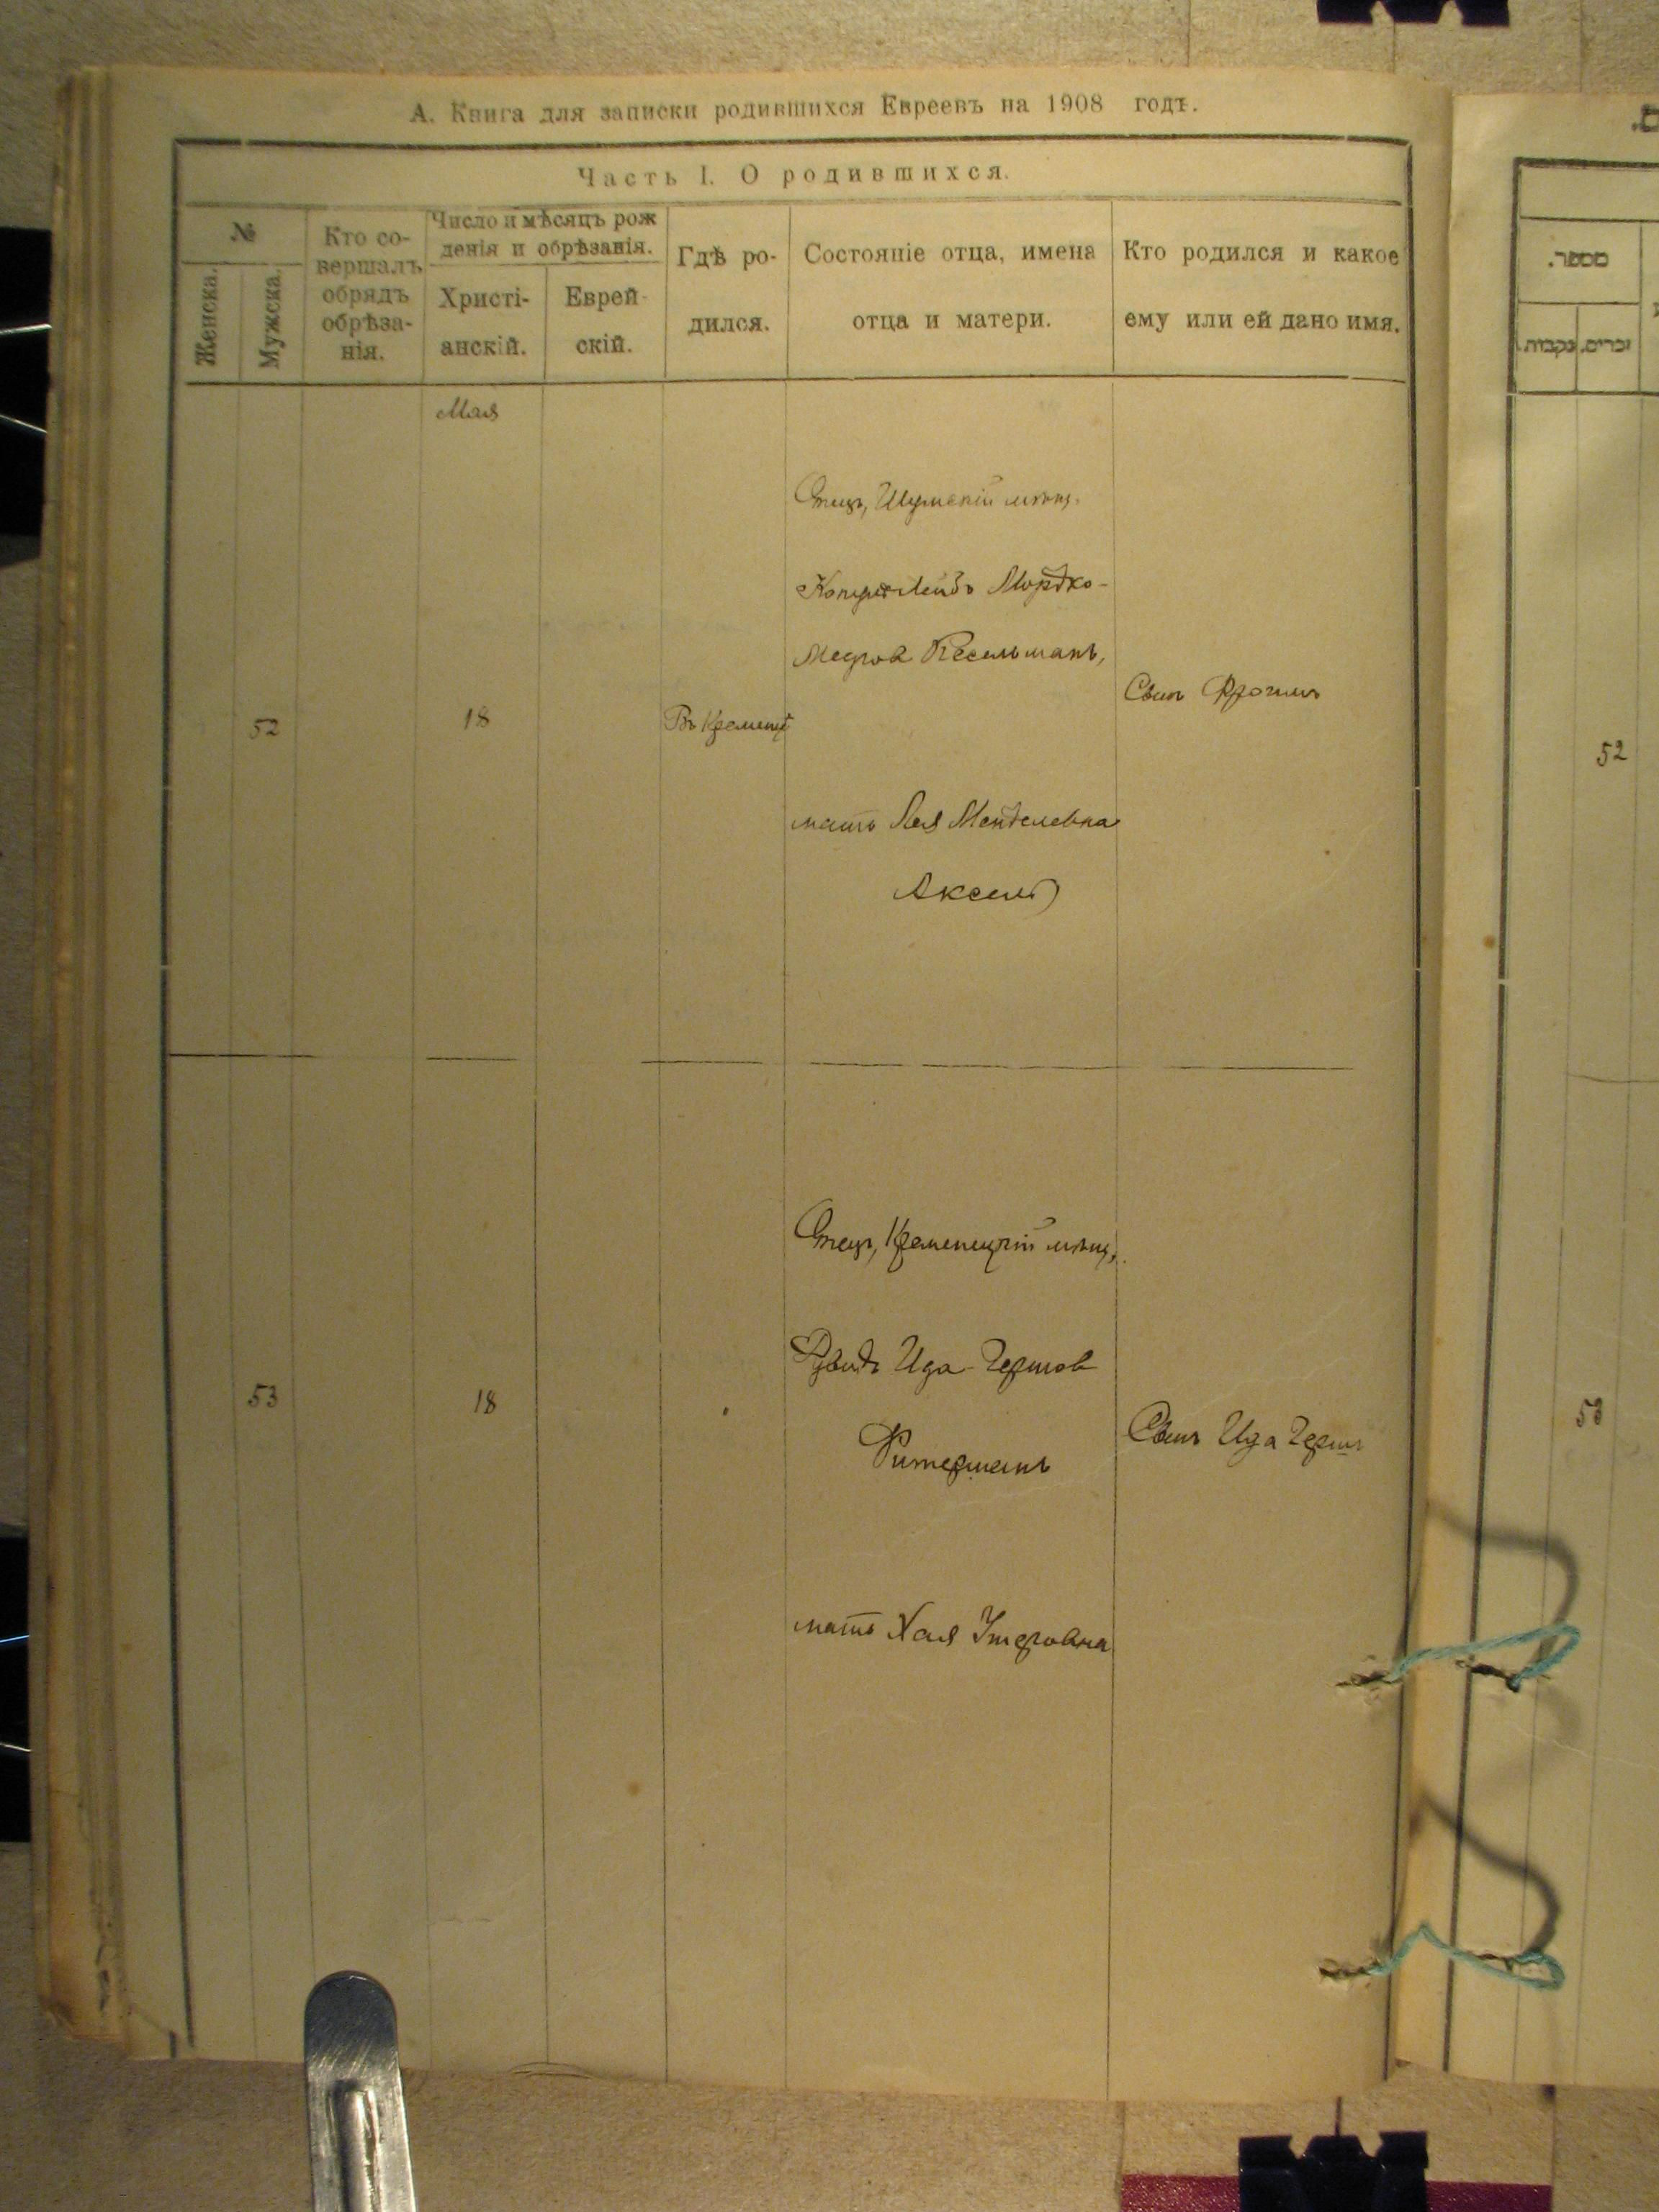 А. Книга для записки родившихся Евреевъ на 1908 годъ.
Часть I. О родившихся.
№
Женска.
Мужска.
Кто со-
вершалъ
обрядъ
обрѣза-
нія.
Число и мѣсяцъ рож
денія и обрѣзанія.
Христі-
анскій.
Еврей-
скій.
Гдѣ ро-
дился.
Состояніе отца, имена
отца и матери.
Кто родился и какое
ему или ей дано имя.
Мая
52
18
Въ Кременцѣ
Отецъ, Шумскій мѣщ.
Лейбъ Мордко-
Кесельманъ,
мать Лея Менделевна
Аксель
Сынъ Фроимъ
53
18
Отецъ, Кременецкій мѣщ.
Ида-Гершов
Ритерманъ
мать Хая
Сынъ Ида Гершъ
מספר.
זכרים.
נקבות.
52
53